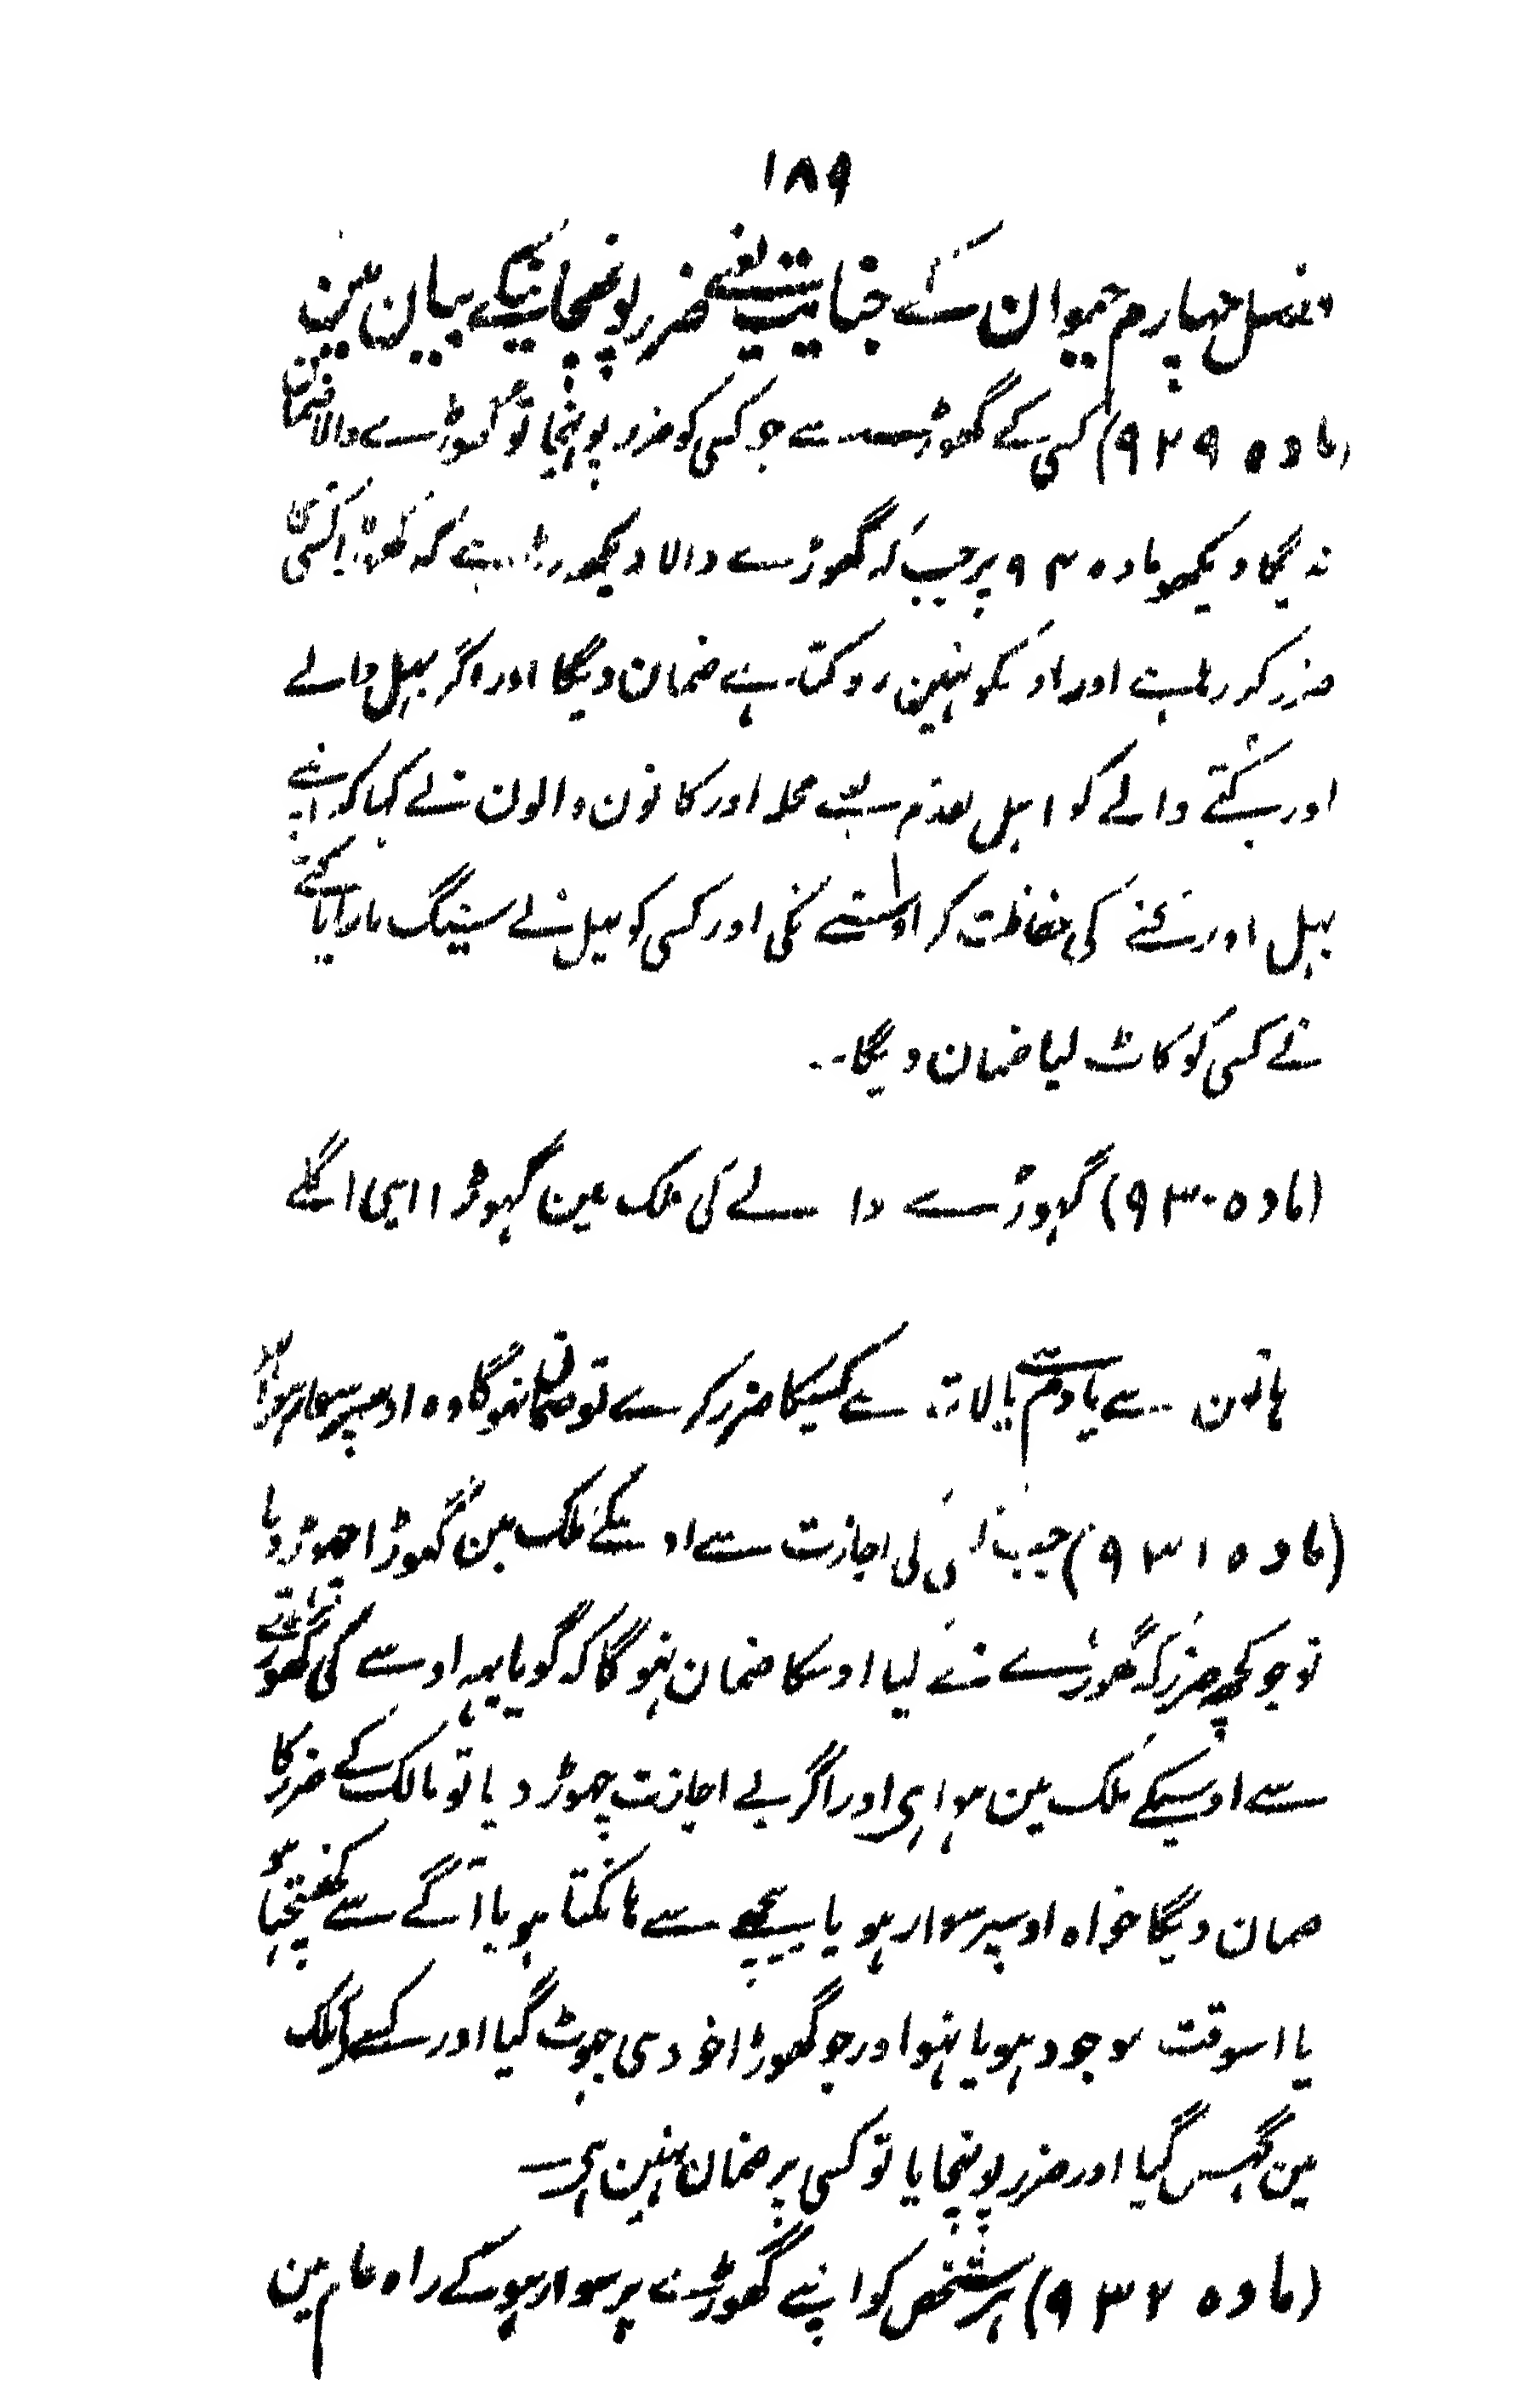 ۱۸۹
فصل چہارم حیوان کے جنایت یعنے ضرر پونچانیکے بیان مین
(مادہ ۹۲۹) کسی کے گھوڑے سے جو کسی کو ضرر پہونچا تو گھوڑے والا ضمان
نہ دیگا دیکھو مادہ ۹۴ پر جب کہ گھوڑے والا دیکھ رہا ہے کہ گھوڑا کسی کا
ضرر کر رہا ہے اور اوسکو نہین روکتا ہے ضمان دیگا اور اگر بیل والے
اور کتے والے کو اہل محلہ اور گانون والون نے کہا کہ اپنے
بیل اور کتے کی حفاظت کر اوسنے نکی اور کسی کو بیل نے سینگ مارا یا کتے
نے کسی کو کاٹ لیا ضمان دیگا۔
(مادہ ۹۳۰) گہوڑے والے کی ملک مین گہوڑا اپنی اگلے
ہاتون سے یا دم یا لات سے کسیکا ضرر کرے تو ضمان نہوگا وہ اوسپر سوار ہو یا نہو
(مادہ ۹۳۱) جب کسی کی اجازت سے اوسکے ملک مین گہوڑا چہوڑ دیا
تو جو کچھ ضرر کہ گھوڑے نے کیا اوسکا ضمان نہوگا کہ گویا یہہ اوسے کی گھوڑے
سے اوسیکے ملک مین ہوا ہی اور اگر بے اجازت چہوڑ دیا تو مالک کے ضرر کا
ضمان دیگا خواہ اوسپر سوار ہو یا پیچھے سے ہانکتا ہو یا آگے سے کھینچتا ہو
یا اسوقت موجود ہو یا نہو اور جو گھوڑا خود ہی چھوٹ گیا اور کسی کی ملک
مین گہس گیا اور ضرر پونچایا تو کسی پر ضمان نہین ہی۔
(مادہ ۹۳۲) ہر شخص کو اپنے گھوڑے پر سوار ہو کے راہ عام مین